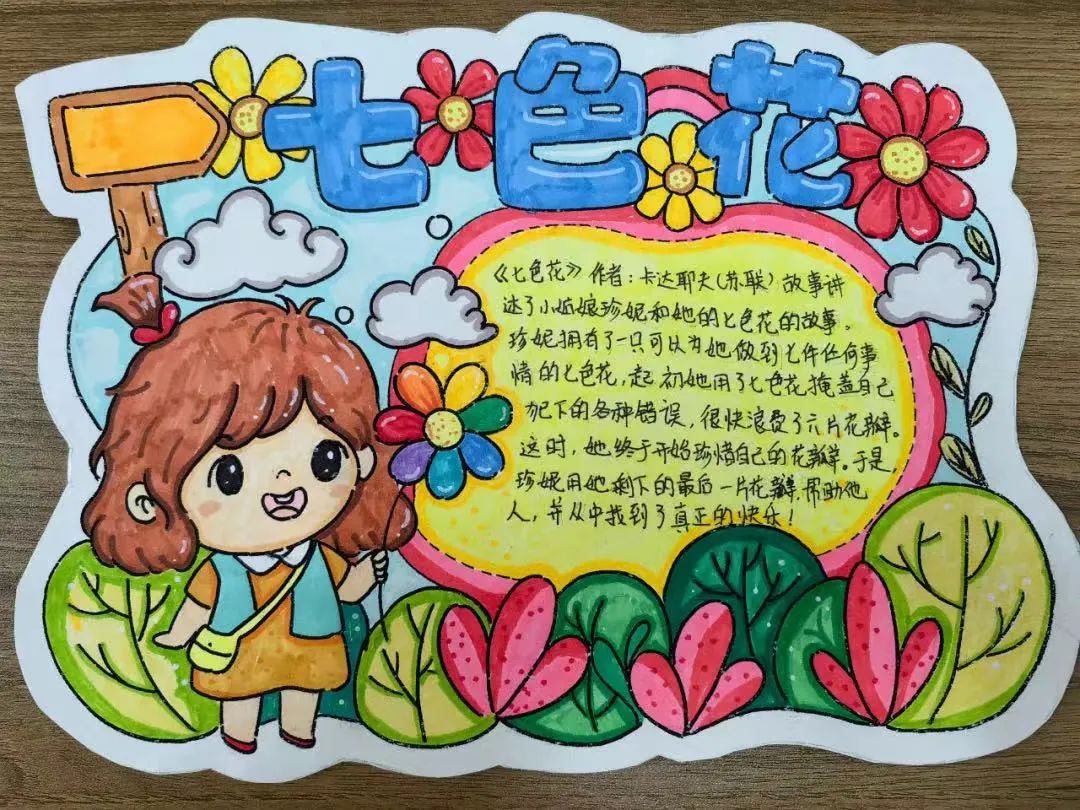 七色花
《七色花》作者:卡达耶夫(苏联)故事讲
述了小姑娘珍妮和她的七色花的故事。
珍妮拥有了一只可以为她做到七件任何事
情的七色花,起初她用了七色花掩盖自己
犯下的各种错误,很快浪费了六片花瓣。
这时,她终于开始珍惜自己的花瓣。于是
珍妮用她剩下的最后一片花瓣帮助他
人,并从中找到了真正的快乐!